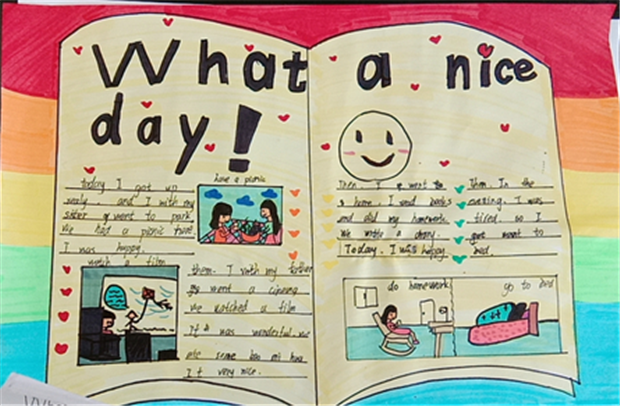 What a nice
day!
have a picnic
today I got up
early. and I with my
sister went to park
We had a picnic here.
I was happy.
watch a film
then. I with my
went a cinema
We watched a film
It was wonderful. we
some
It very nice.
Then. I went to
home. I read books
and did my homework
We write a diary.
Today. I was happy
Then. In the
evening. I was
tired. so I
went to
bed.
do homework
go to bed